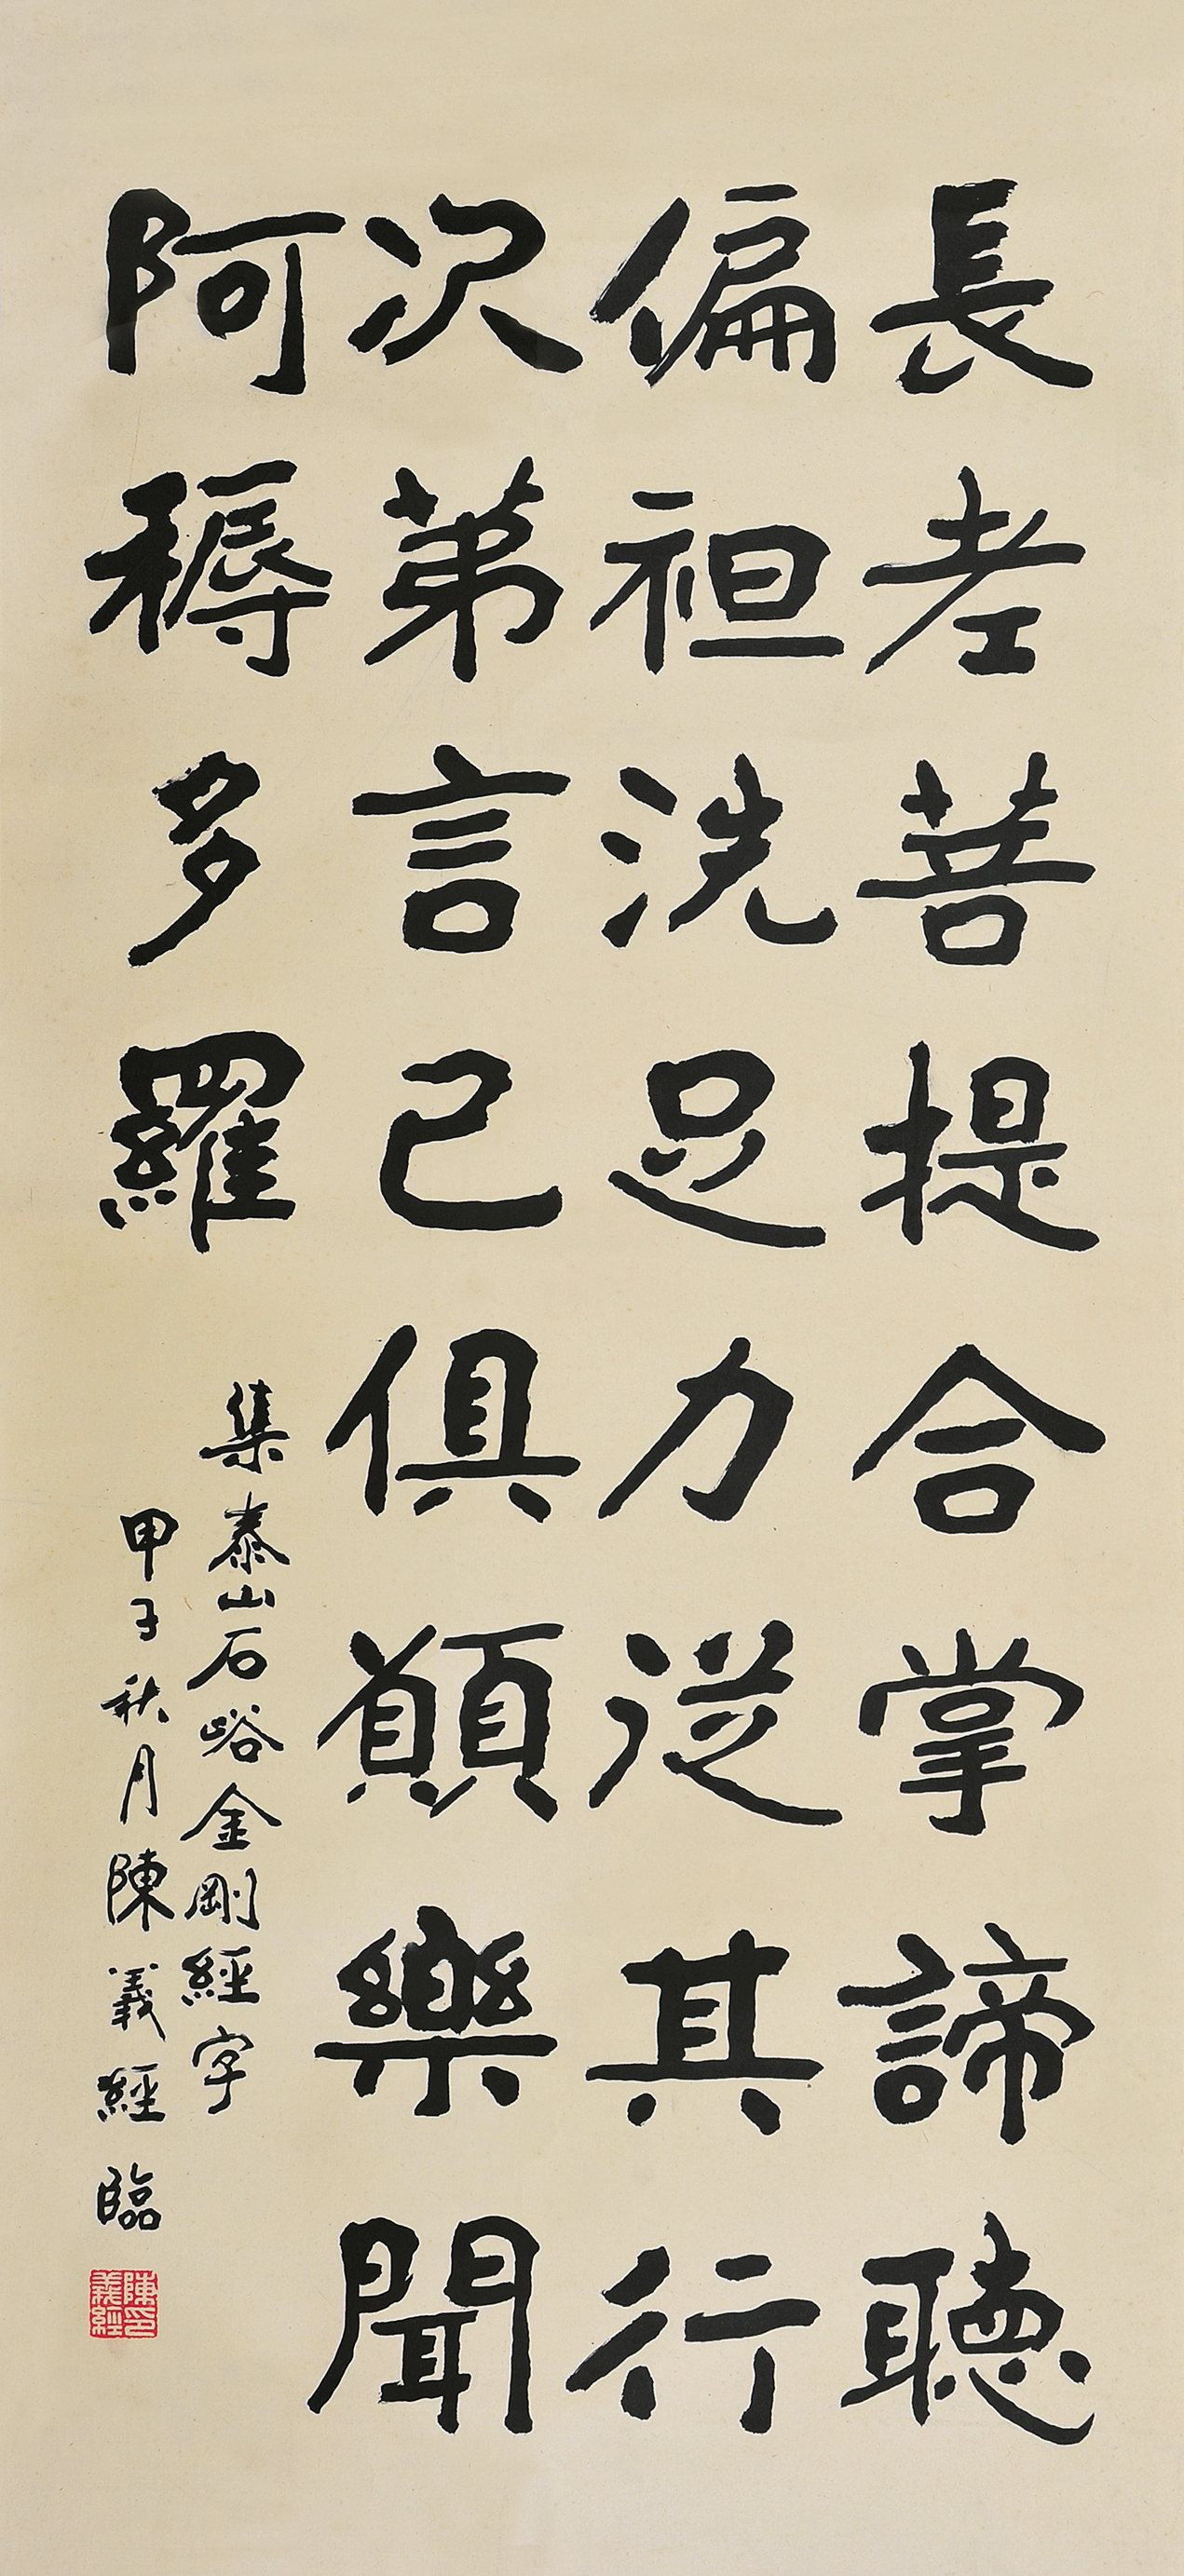 長老菩提合掌諦聽
偏袒洗足力從其行
次第言已俱願樂聞
阿耨多羅
集泰山石峪金剛經字
甲子秋月陳義經臨
陳印義經